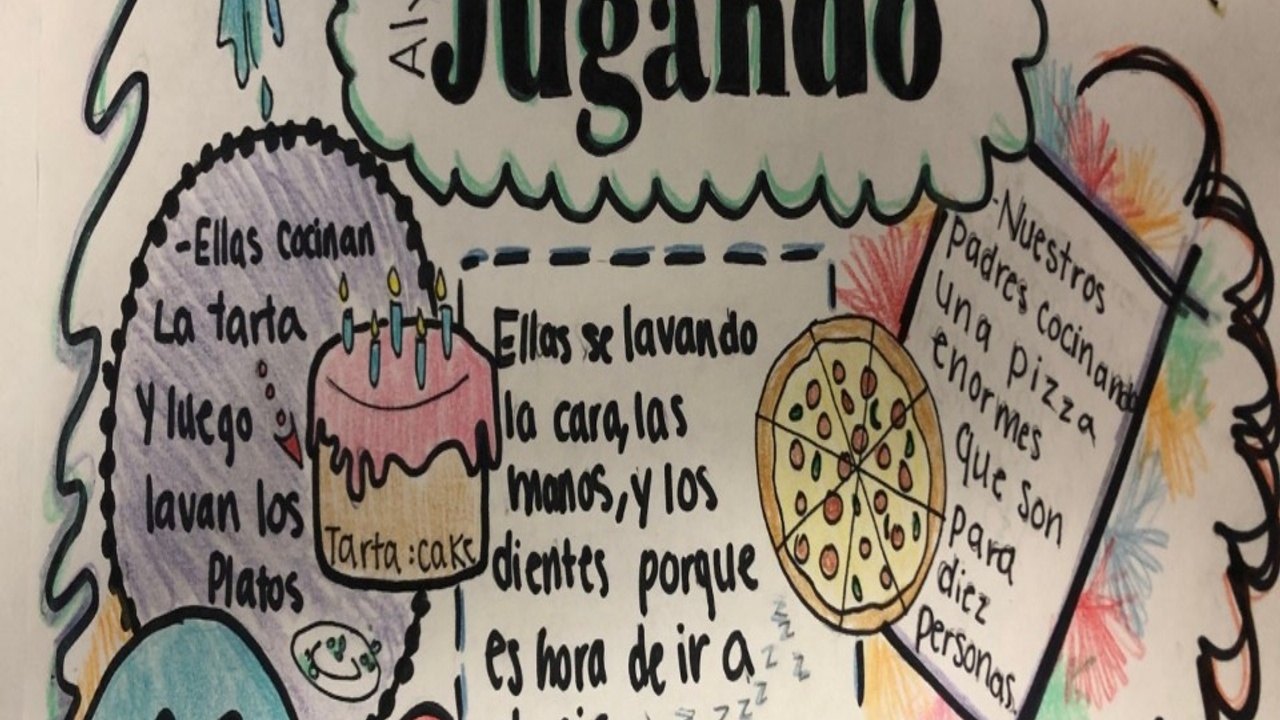 Jugando
-Ellas cocinan
La tarta
Y luego
lavan los
Platos
Tarta:cake
Ellas se lavando
la cara, las
manos, y los
dientes porque
es hora de ir a
z z z z z z
-Nuestros
padres cocinando
una pizza
enormes
que son
para
diez
personas.